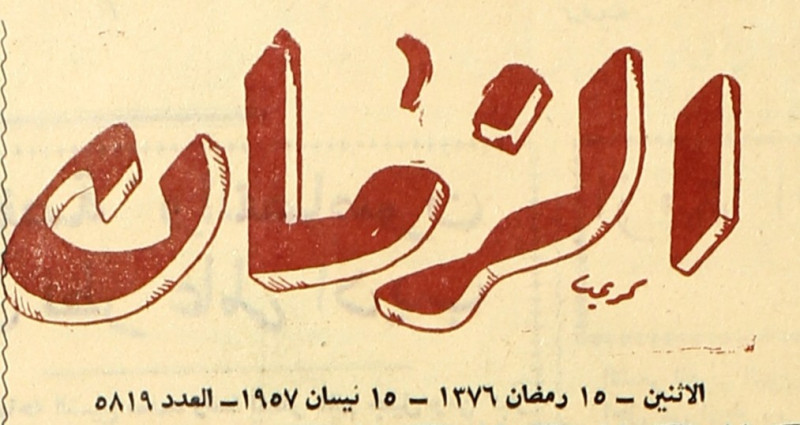 الزمان
كريم
الاثنين – ١٥ رمضان ١٣٧٦ – ١٥ نيسان ١٩٥٧ – العدد ٥٨١٩